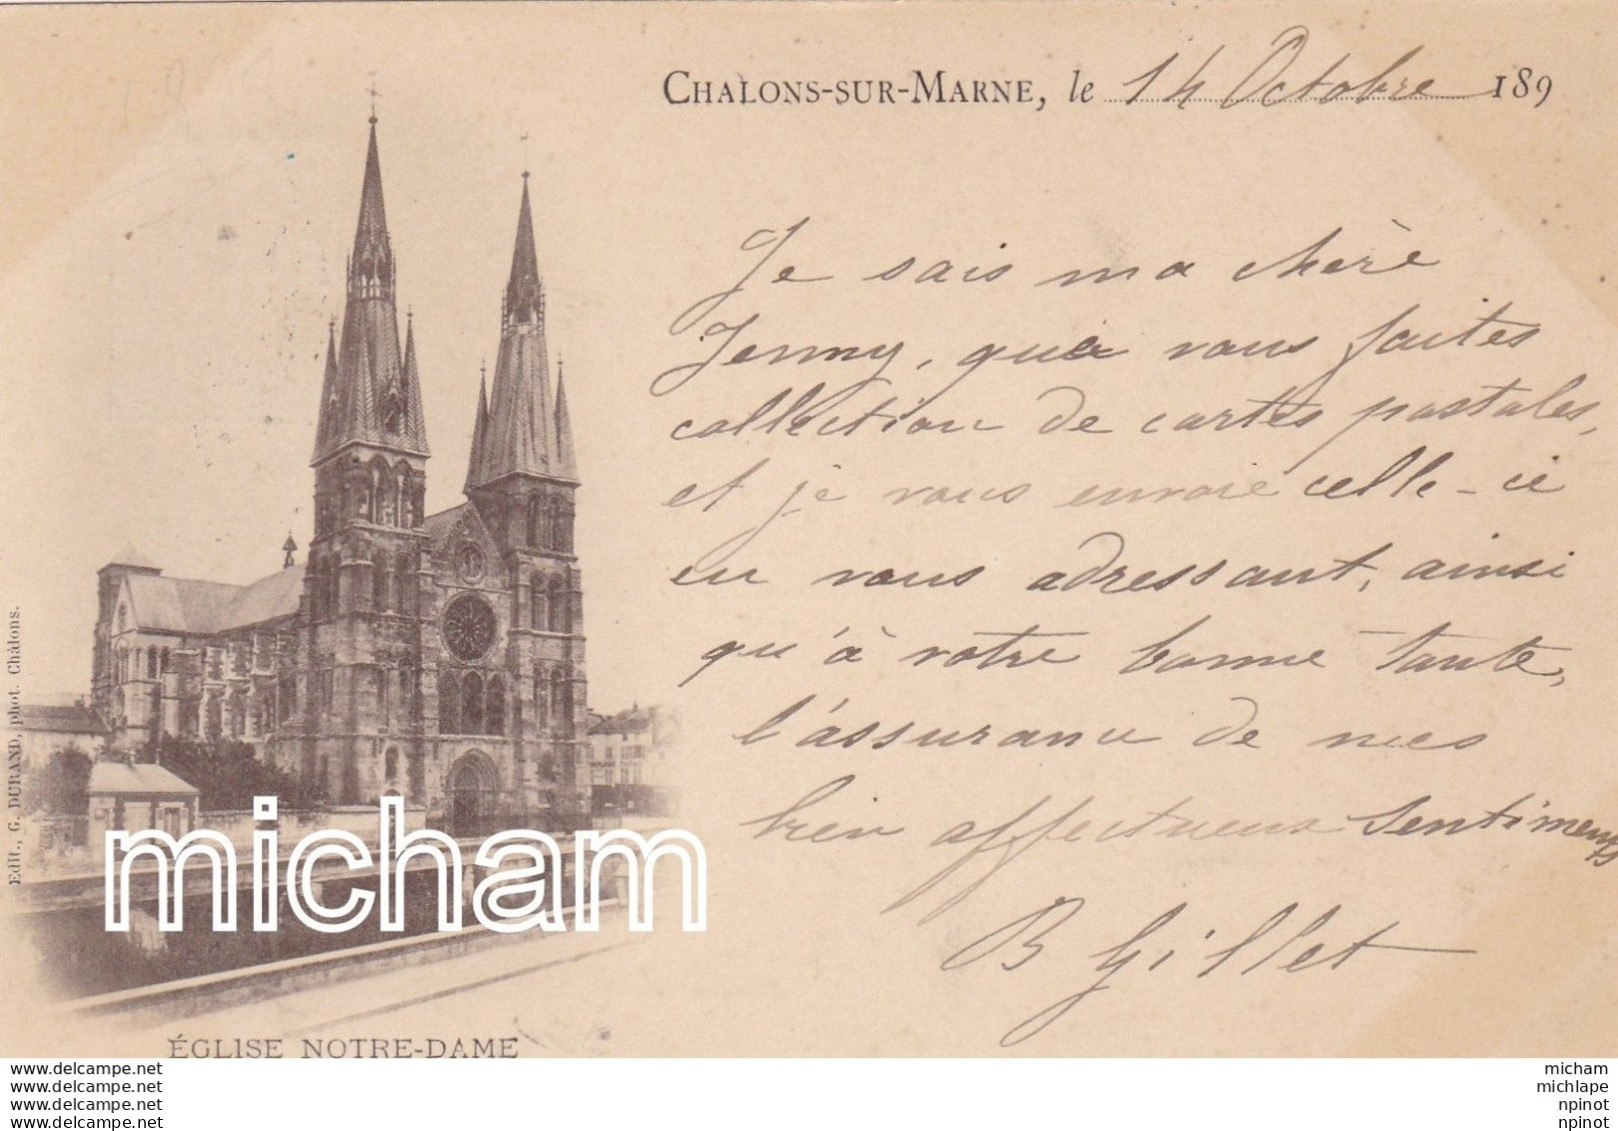 CHALONS-SUR-MARNE, le 14 Octobre 189
Je sais ma chère
Jenny, que vous faites
collection de cartes postales,
et je vous envoie celle-ci
en vous adressant, ainsi
qu'à votre bonne Tante,
l'assurance de mes
bien affectueux sentiments
B Gillet
Edit., G. DURAND, phot. Châlons.
micham
ÉGLISE NOTRE-DAME
www.delcampe.net
www.delcampe.net
www.delcampe.net
www.delcampe.net
micham
michlape
npinot
npinot